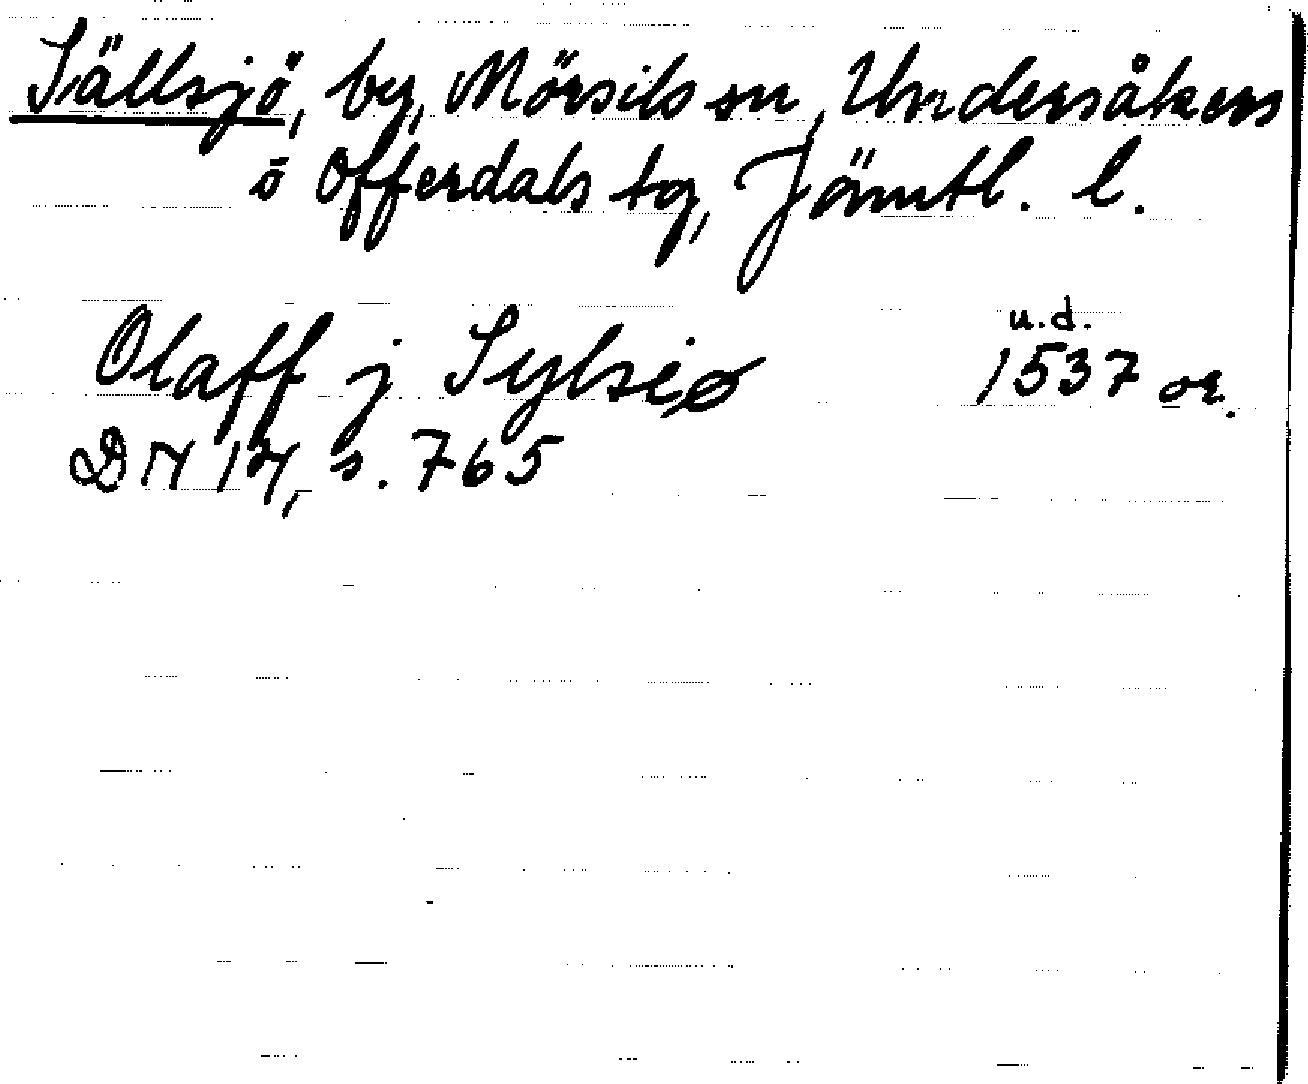 Sällsjö, by, Mörsils sn, Undersåkers
o Offerdals tg, Jämtl. l.
Olaff j Sylsiø u.d. 1537 or.
DN 14, s. 765